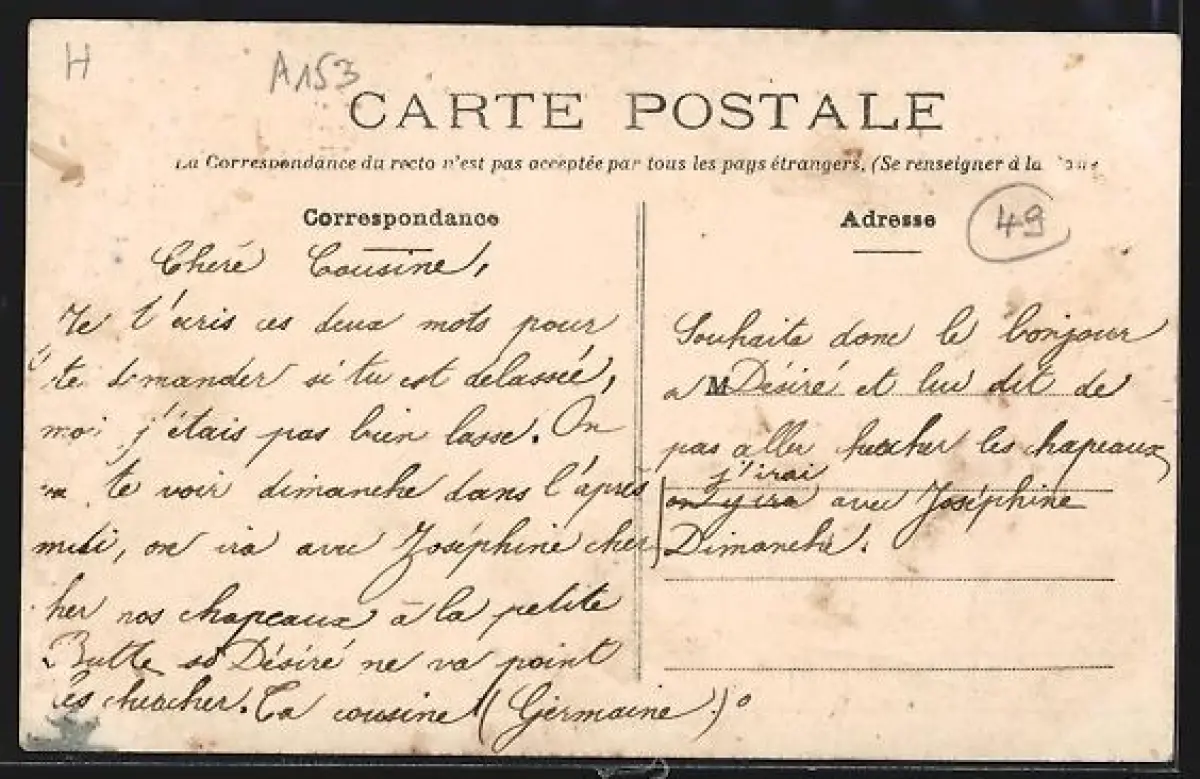 H
A153
CARTE POSTALE
La Correspondance du recto n'est pas acceptée par tous les pays étrangers. (Se renseigner à la
Correspondance
Cheré Cousine,
Je t'ecris ces deux mots pour
te demander si tu est delassée,
moi j'étais pas bien lasse. On
va te voir dimanche dans l'après
midi, on ira avec Joséphine cher
her nos chapeaux à la petite
Butte so Désiré ne va point
les chercher. Ta cousine (Germaine)
Adresse
49
Souhaite donc le bonjour
a M Désiré et lui dit de
pas aller chercher les chapeaux
j'irai
on y ira avec Joséphine
Dimanche.